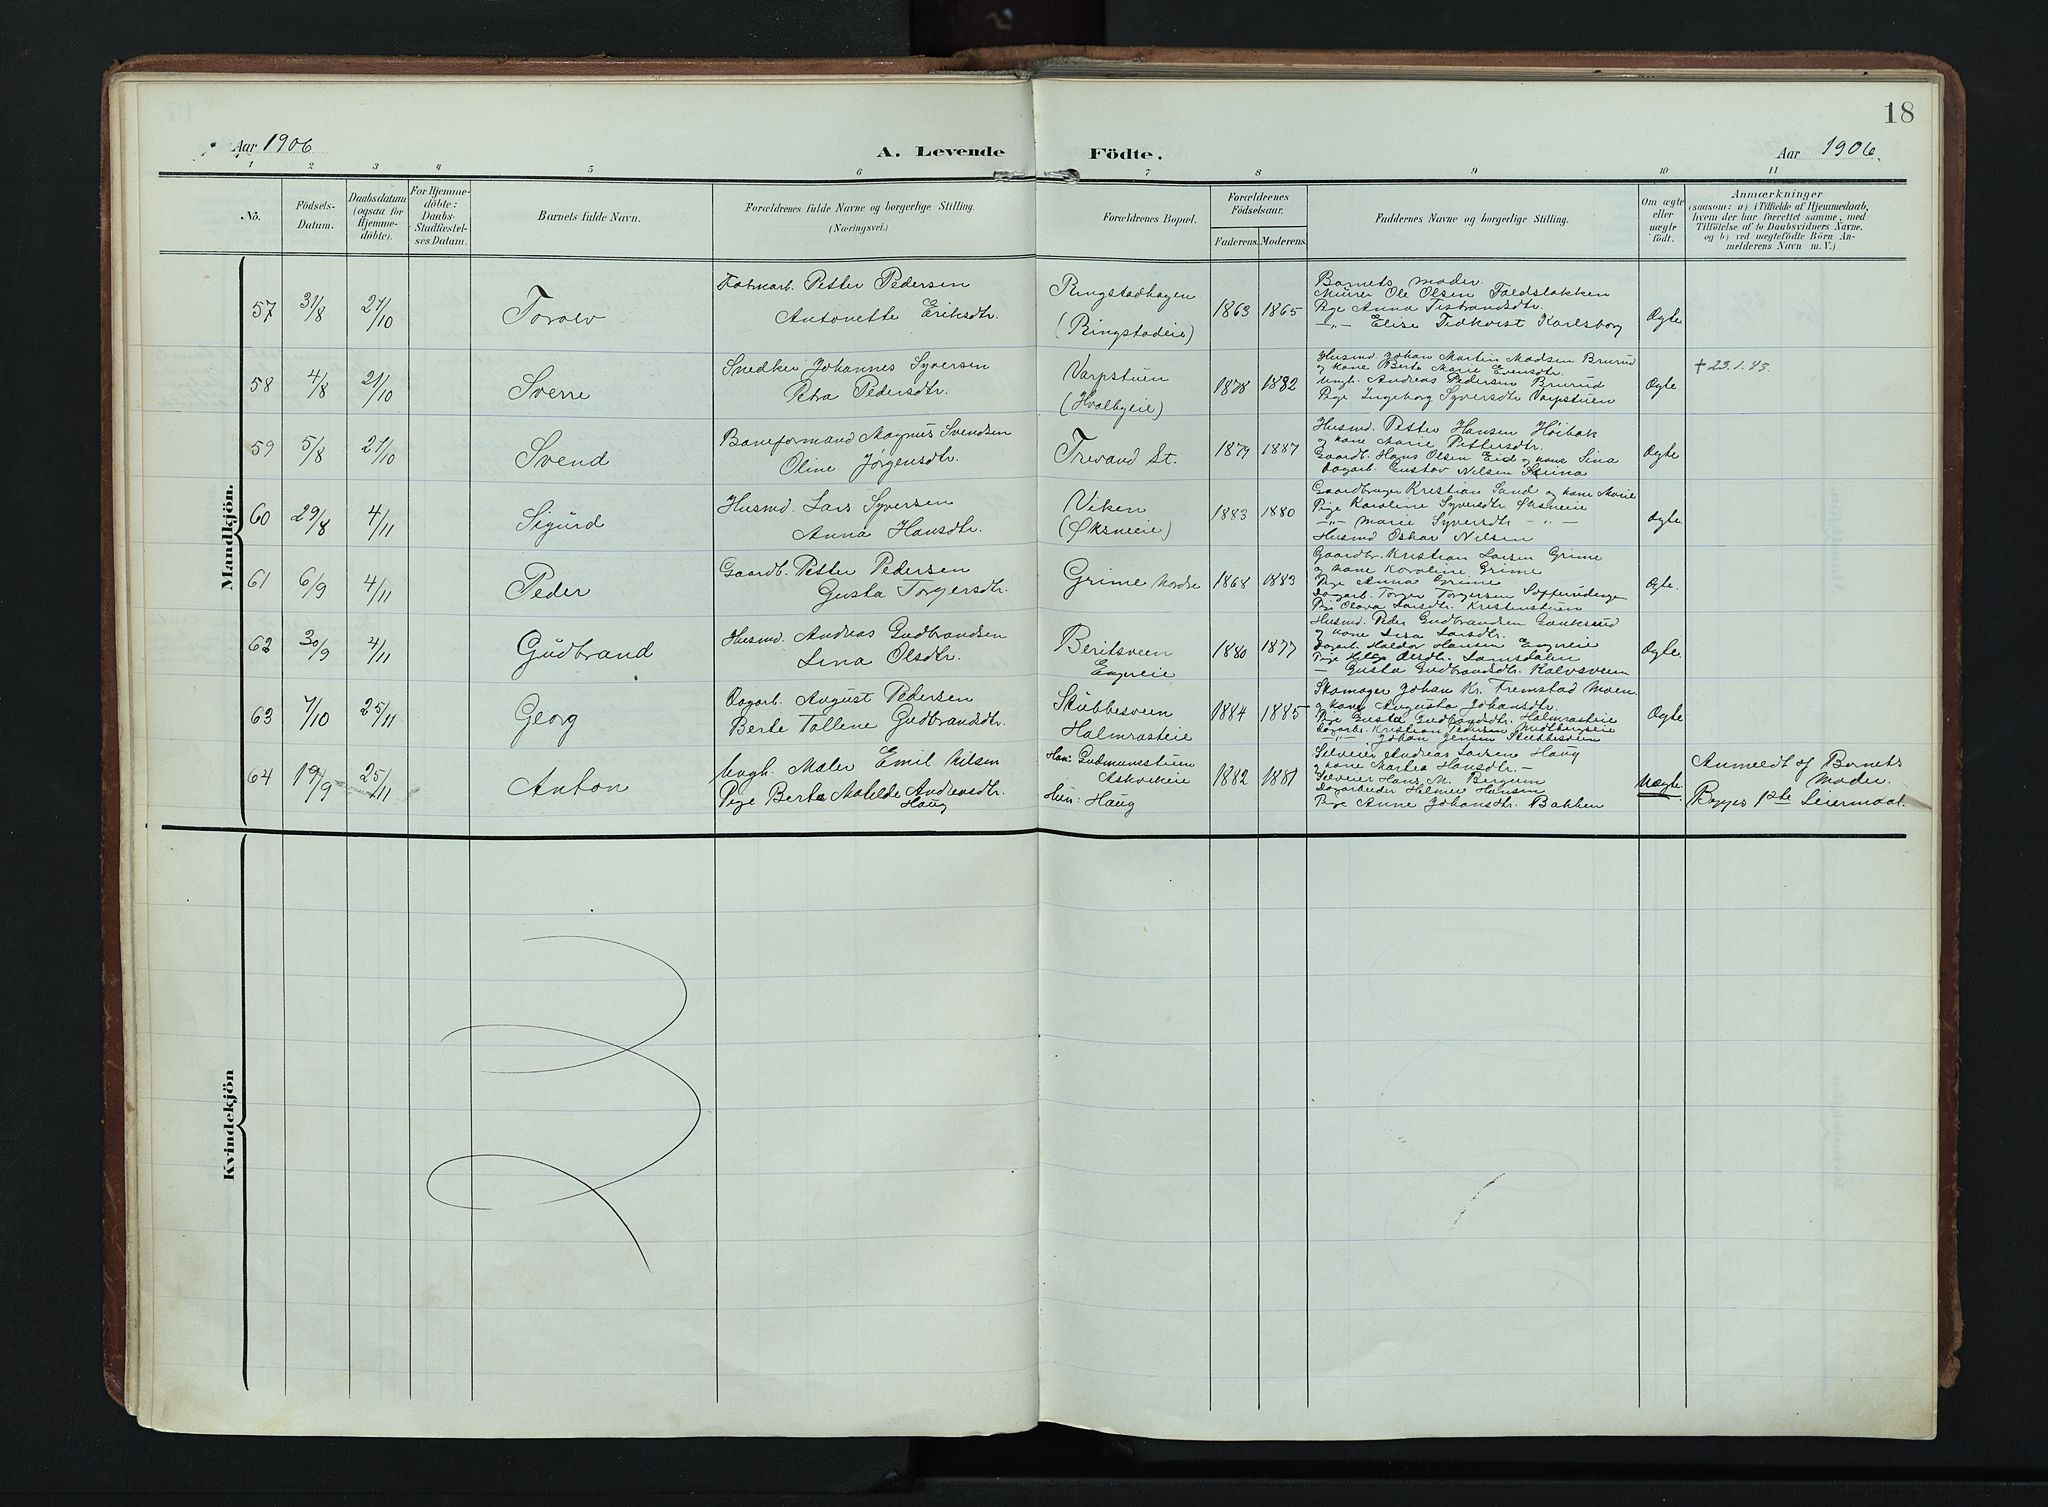 18
Aar 1906
A. Levende Födte.
Aar 1906.
1 2 3 4 5 6 7 8 9 10 11
Nö.
Födsels-
Datum.
Daabsdatum
(ogsaa for
Hjemme-
döbte).
For Hjemme-
döbte:
Daabs-
Stadfæstel-
ses Datum.
Barnets fulde Navn.
Forældrenes fulde Navne og borgerlige Stilling.
(Næringsvei.)
Forældrenes Bopæl.
Forældrenes
Födselsaar.
Faderens. Moderens.
Faddernes Navne og borgerlige Stilling.
Om ægte
eller
uægte
födt.
Anmærkninger
(saasom: a) i Tilfælde af Hjemmedaab,
hvem der har forrettet samme, med
Tilföielse af to Daabsvidners Navne.
og b) ved uægtefödte Börn An-
melderens Navn m. V.)
Mandkjön.
57 31/8 21/10 Torolv
Petter Pedersen
Antonette Eriksdtr.
Ringstadhagen
(Ringstadeie)
1863 1865
Barnets moder
Murer Ole Olsen Foldslokken
Pige Anna
-"- Elise Tidkvist Karlsborg
Ægte
58 4/8 21/10 Sverre
Snedker Johannes Syversen
Petra Pedersdtr.
Varpstuen
(Hvalbyeie)
1878 1882
Husmd. Johan Martin Madsen Brurud
og kone Berte Marie Evensdtr.
Ungk. Andreas Pedersen Brurud
Pige Ingeborg Syversdtr Varpstuen
Ægte
+ 23.1.43.
59 5/8 21/10 Svend
Baneformand Magnus Svendsen
Oline Jørgensdtr.
Trevand St.
1879 1887
Husmd. Petter Hansen Høibak
og kone Marie Pettersdtr.
Gaardb. Hans Olsen Eid og kone Sina
Dagarb. Gustav Nilsen
Ægte
60 29/8 4/11 Sigurd
Husmd. Lars Syversen
Anna Hansdtr.
Viken
(Øksneeie)
1883 1880
Gaardbruger Kristian Sand og kone Marie
Pige Karoline Syversdtr. Øksneeie
-"- Marie Syversdtr -"-
Husmd Oskar Nilsen
Ægte
61 6/9 4/11 Peder
Gaardb. Petter Pedersen
Gusta Torgersdtr.
Grime nordre
1868 1883
Gaardbr. Kristian Larsen Grime
og kone Karoline Grime
Pige Anna Grime
Dagarb. Torger Torgersen
Pige Olava Larsdtr. Kristenstuen
Ægte.
62 30/9 4/11 Gudbrand
Husmd. Andreas Gudbrandsen
Lina Olsdtr.
Beritsveen
Engeeie
1880 1877
Husmd. Peder Gudbrandsen
og kone Lisa Larsdtr.
Dagarb. Haldor Hansen Engeeie
Pige Helga Olsdtr. Lomsdalen
— Gusta Gudbrandsdtr. Kalvsveen
Ægte.
63 7/10 25/11 Georg
Dagarb. August Pedersen
Berte Tallene Gudbrandsdtr.
Stubbesveen
Halmrasteie
1884 1885
Skomager Johan Kr. Fremstad Moen
og kone Augusta Johansdtr.
Pige Gusta Gudbrandsdtr. Halmrasteie
Dagarb. Kristian Pedersen
-"- Johan Jensen Stubbesveen
Ægte
64 19/9 25/11 Anton
Ungk. Maler Emil Nilsen
Pige Berte Matilde Andreasdtr.
Haug
Han: Gudmundstuen
Askvikeie
Hun: Haug
1882 1881
Selveier Andreas Larsen Haug
og kone Martea Hansdtr.
Selveier Hans M. Bergum
Dagarbeider Helmer Hansen
Pige Anne Johansdtr. Bakken
Uægte.
Anmeldt af Barnets
Moder.
Begges 1ste Leiermaal.
Kvindekjön